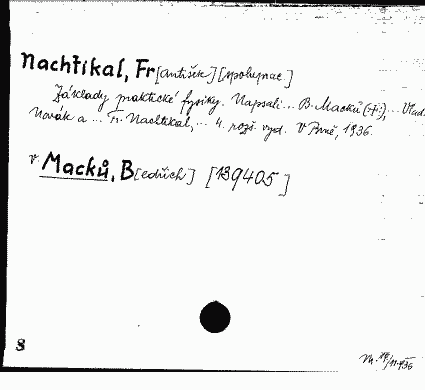 Nachtikal, Fr[antišek] [spoluprac.]
Základy praktické fysiky. Napsali... B. Macků (†),... Vlad.
Novák a ... Fr. Nachtikal,... 4. rozš. vyd. V Brně, 1936.
v Macků, B[edřich] [139405]
8